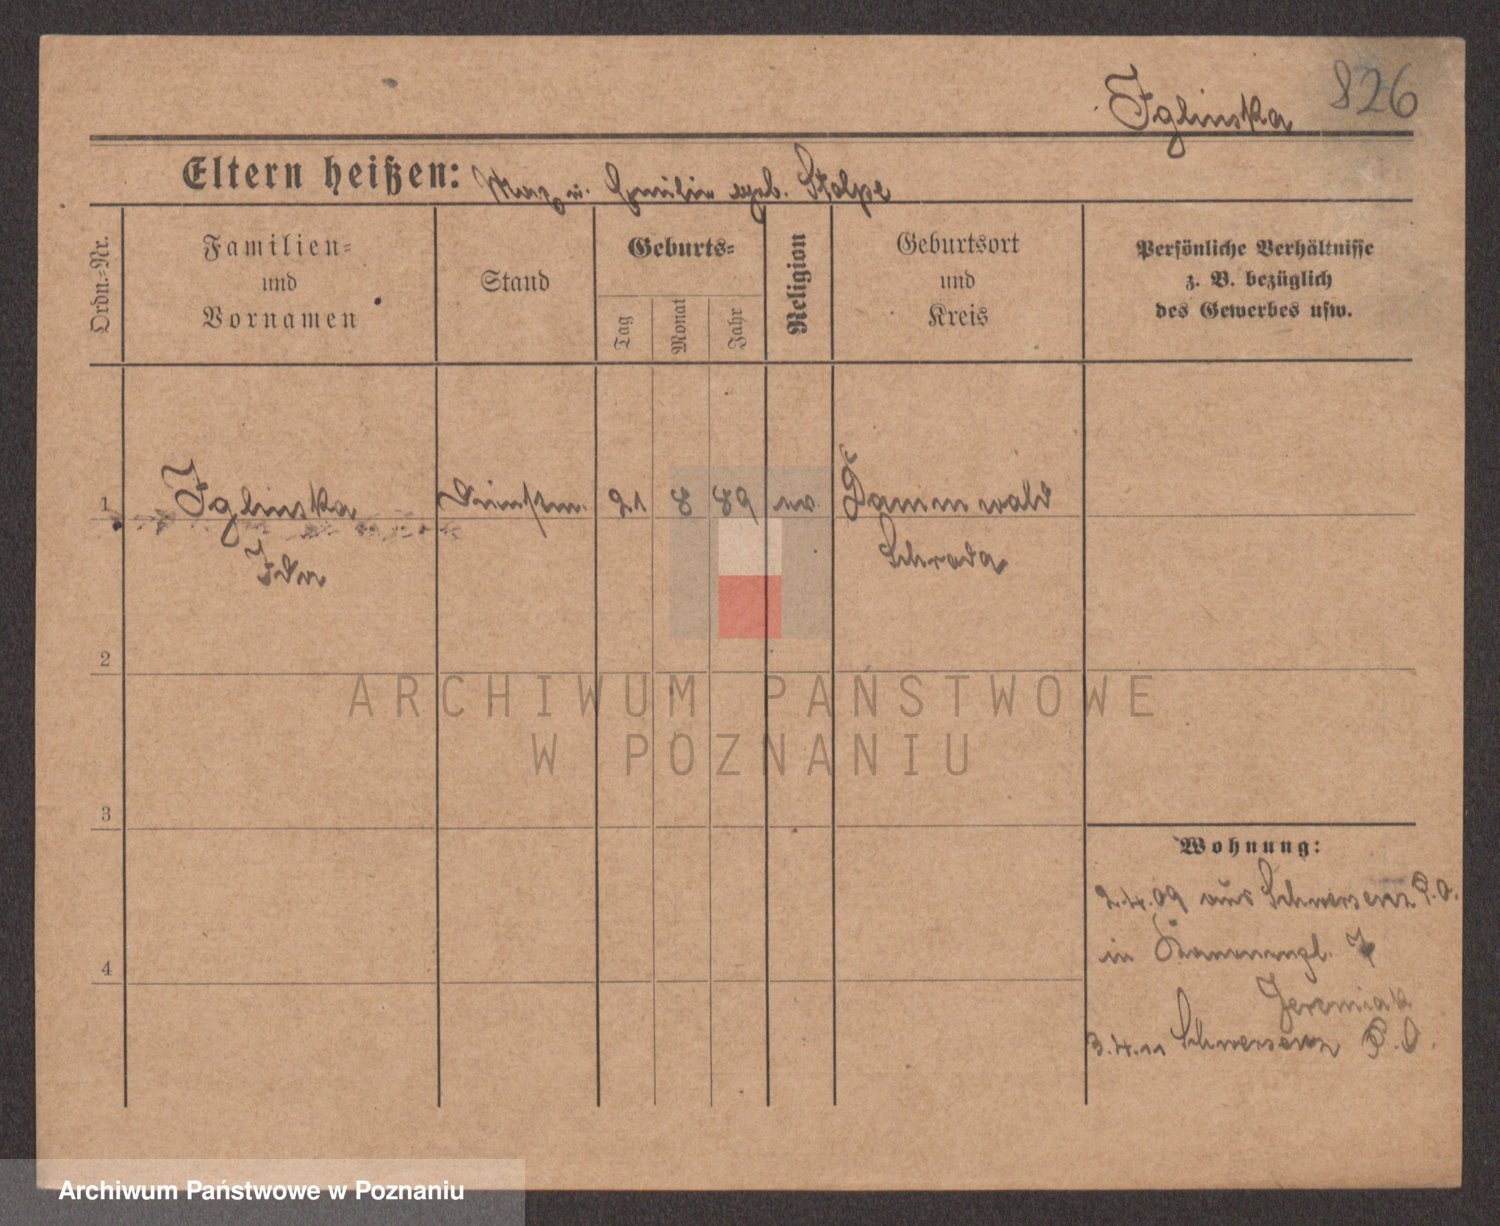 Iglinska 826
Eltern heißen: Max u. Emilie geb. Stolpe
Ordn.-Nr.
Familien-
und
Vornamen
Stand
Geburts-
Tag
Monat
Jahr
Religion
Geburtsort
und
Kreis
Persönliche Verhältnisse
z. B. bezüglich
des Gewerbes usw.
1 Iglinska 21 8 89 ev. Dammwald
Ida Schroda
2
3
4
Wohnung:
2.4.09 aus Schwersenz P.O.
in
Jeremiak
3.4.11 Schwersenz P.O.
ARCHIWUM PAŃSTWOWE
W POZNANIU
Archiwum Państwowe w Poznaniu